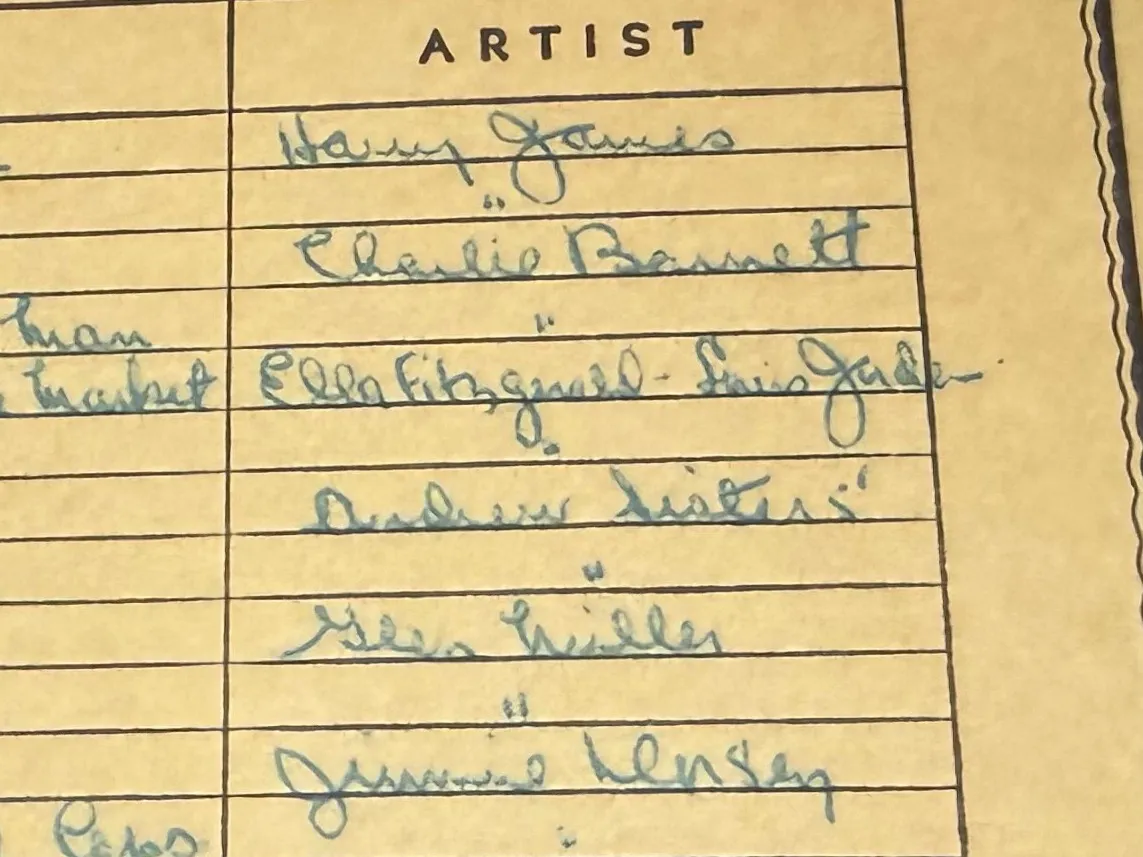 ARTIST
Harry James
"
Charlie Barnett
man "
market Ella Fitzgerald - Louis Jordan
"
Andrew Sisters
"
Glen Miller
"
Jimmie Dorsey
"